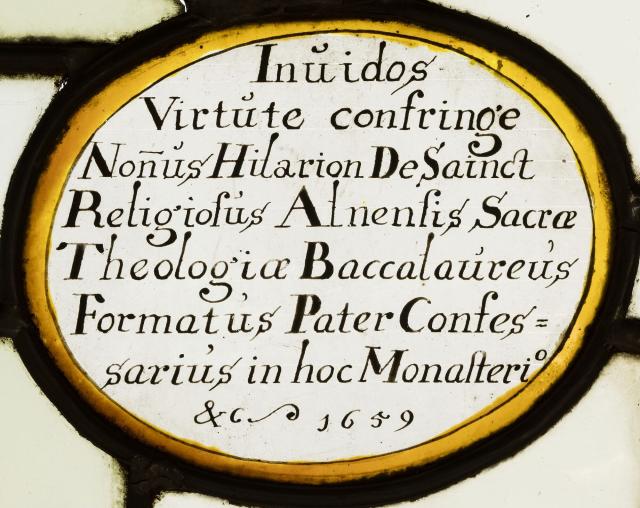 Inŭidos
Virtŭte confringe
Non̄ŭs Hilarion De Sainct
Religioſŭs Alnenſis Sacræ
Theologiæ Baccalaŭreŭs
Formatŭs Pater Confes=
sariŭs in hoc Monaſteriº
&c 1659